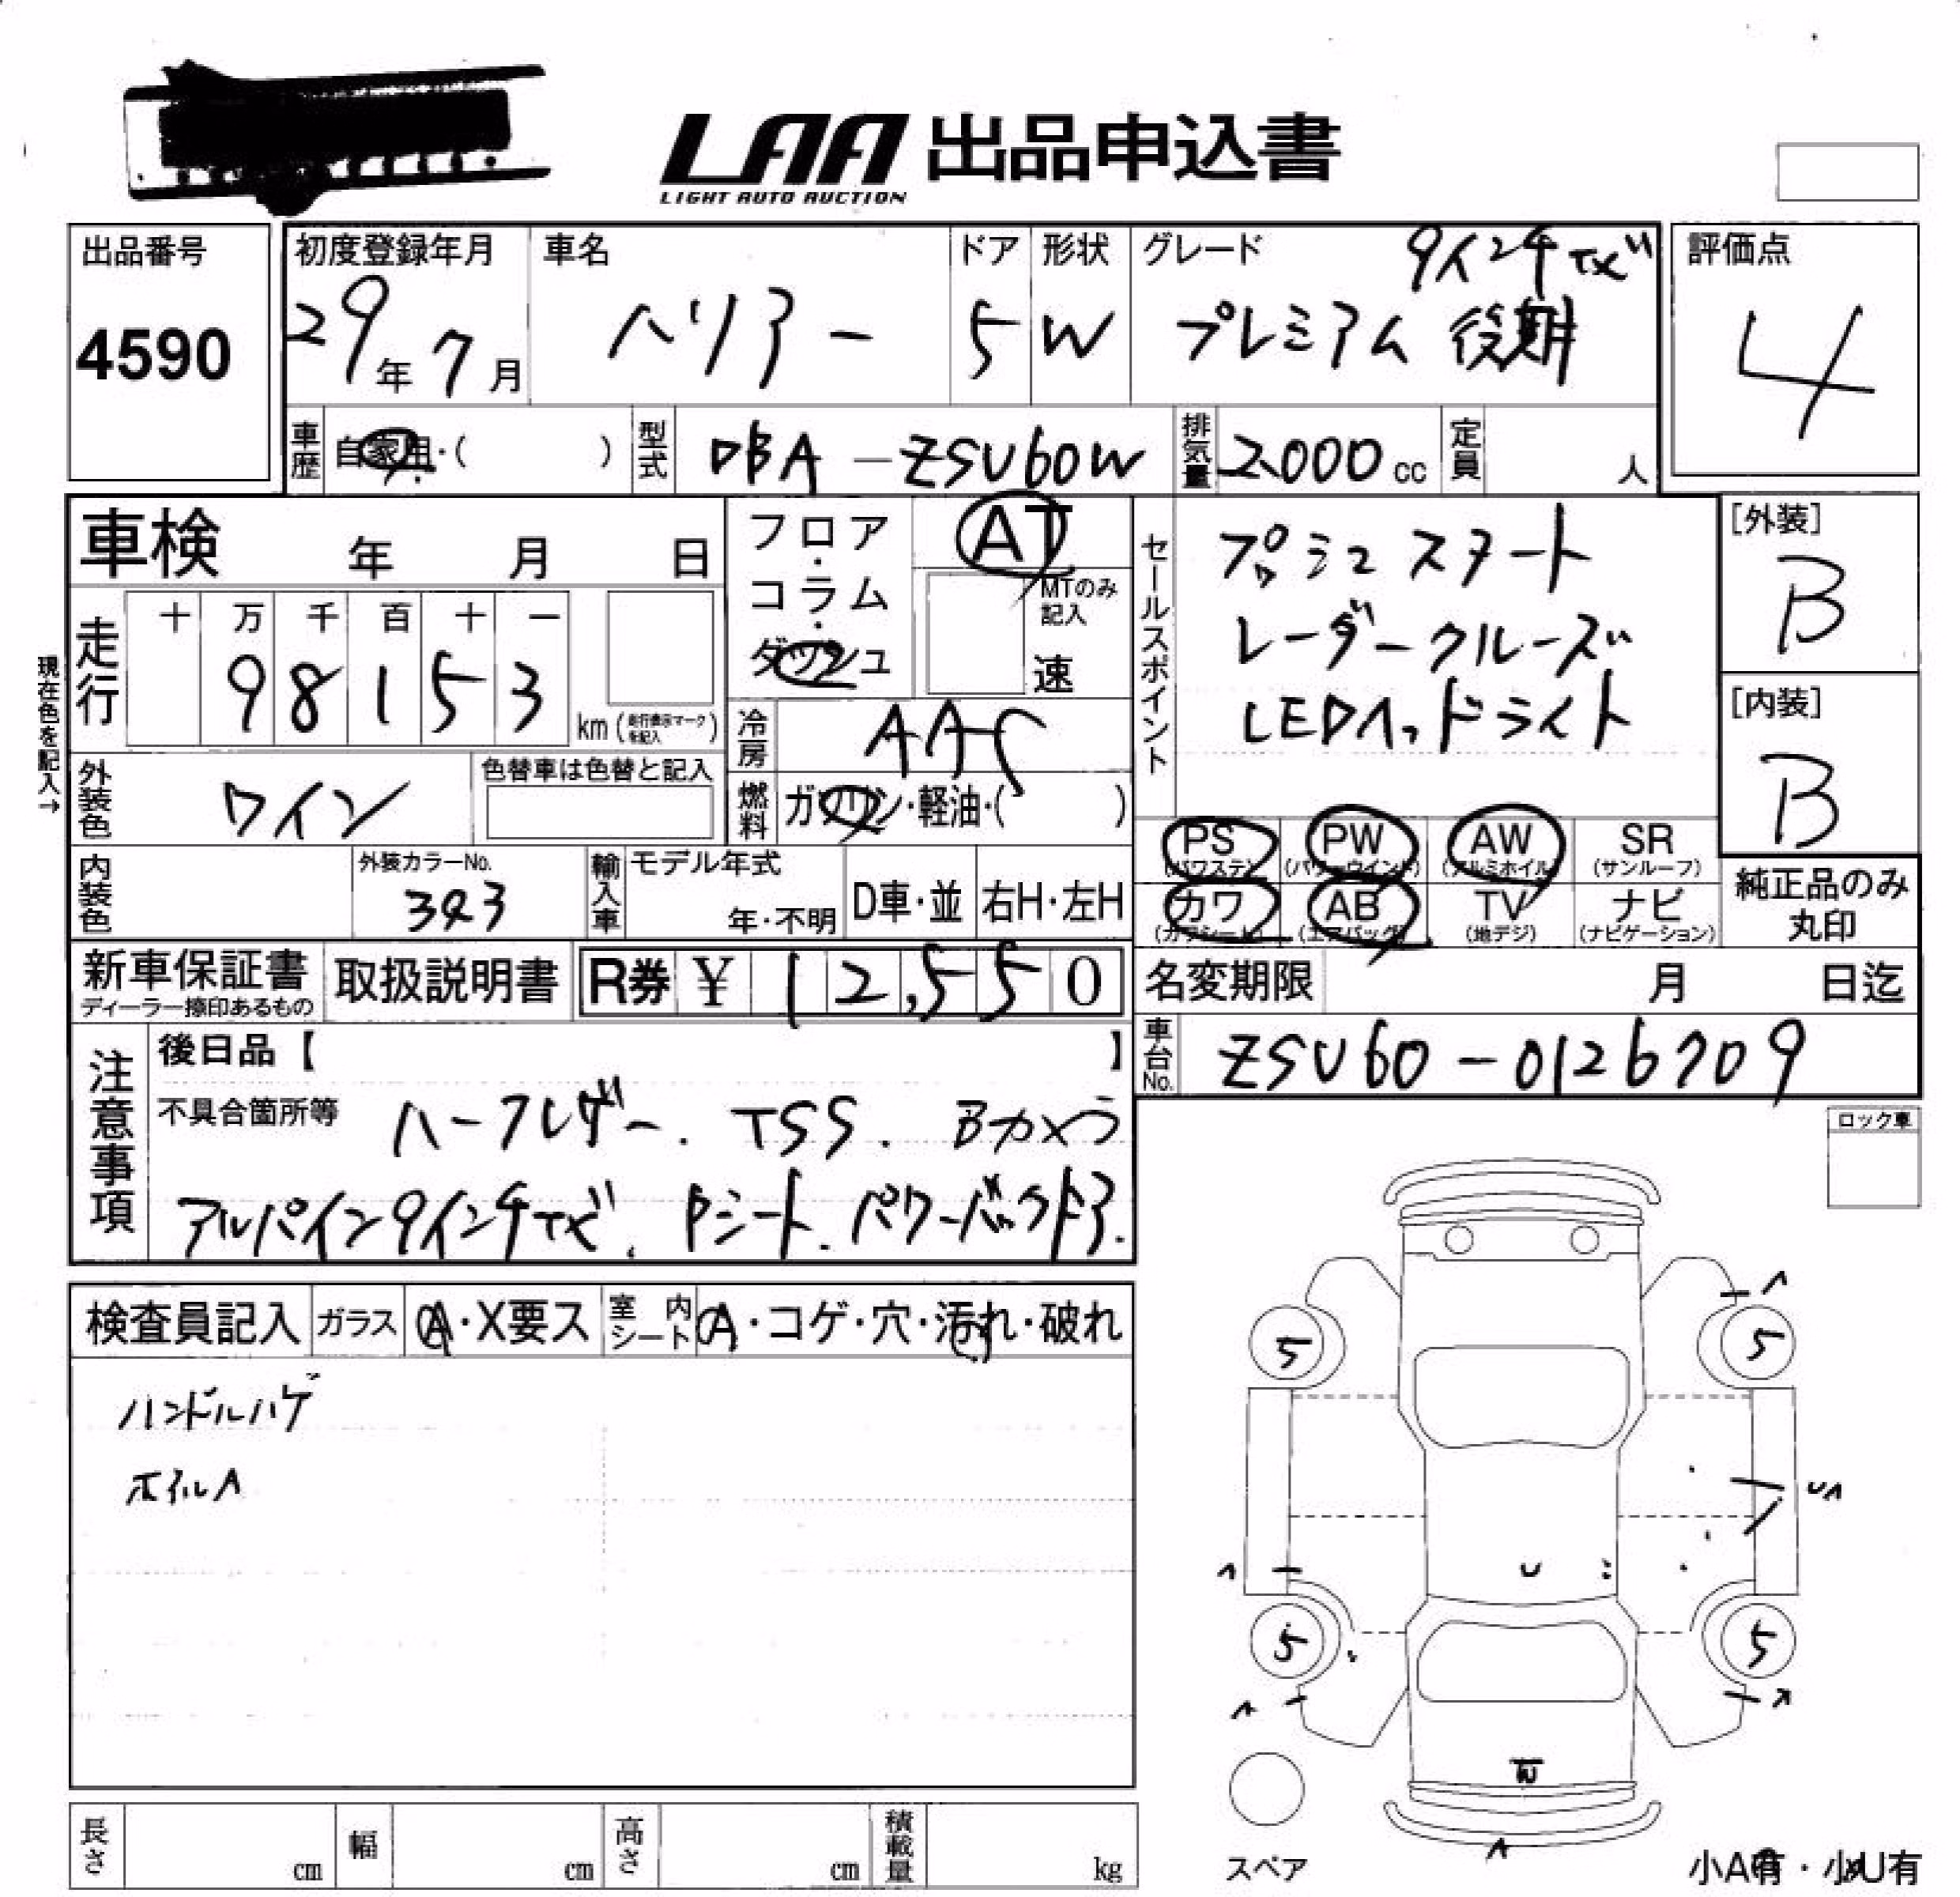 LAA 出品申込書
LIGHT AUTO AUCTION
出品番号
4590
初度登録年月
29年7月
車名
ハリアー
ドア
5
形状
W
グレード
9インチナビ
プレミアム 後期
評価点
4
車歴 自家用・( )
型式 DBA-ZSU60W
排気量 2000cc
定員 人
車検 年 月 日
フロア・コラム・ダッシュ
AT
MTのみ記入
速
セールスポイント
プッシュスタート
レーダークルーズ
LEDヘッドライト
[外装]
B
[内装]
B
現在色を記入→
走行
十 万 千 百 十 一
9 8 1 5 3
km(走行表示マークを記入)
冷房 AAC
燃料 ガソリン・軽油・( )
外装色 ワイン
色替車は色替と記入
内装色
外装カラーNo.
3Q3
輸入車
モデル年式
年・不明
D車・並
右H・左H
PS (パワステ)
PW (パワーウインド)
AW (アルミホイル)
SR (サンルーフ)
カワ (カワシート)
AB (エアバッグ)
TV (地デジ)
ナビ (ナビゲーション)
純正品のみ丸印
新車保証書
ディーラー捺印あるもの
取扱説明書
R券 ¥ 12,550
名変期限 月 日迄
車台No. ZSU60-0126709
注意事項
後日品【 】
不具合箇所等 ハーフレザー. TSS. Bカメラ
アルパイン9インチナビ. Pシート. パワーバックドア.
ロック車
検査員記入
ガラス A・X要ス
室内シート A・コゲ・穴・汚れ・破れ
ハンドルハゲ
ホイルA
A
5
5
UA
A
U
5
5
A
A
A
スペア
小A有・小U有
長さ cm
幅 cm
高さ cm
積載量 kg